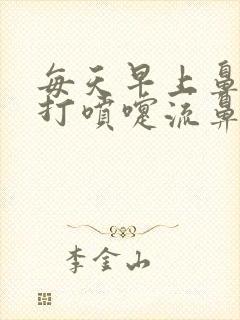 每天早上鼻
打噴嚏流鼻
李金山